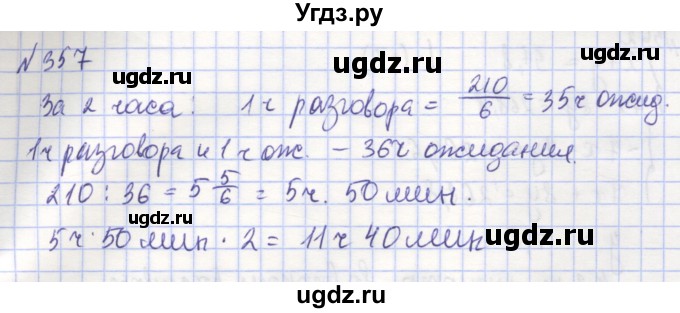 Угдз.ру
№ 357
ugdz.ru ugdz.ru
За 2 часа: 1 ч разговора = 210/6 = 35 ч ожид.
ugdz.ru ugdz.ru
1 ч разговора и 1 ч ож. – 36 ч ожидания.
210 : 36 = 5 5/6 = 5 ч. 50 мин.
ugdz.ru ugdz.ru
5 ч 50 мин · 2 = 11 ч 40 мин
ugdz.ru ugdz.ru